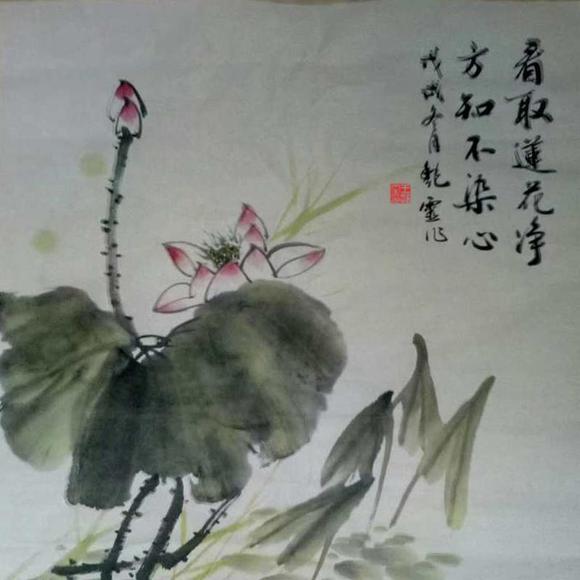 看取蓮花净
方知不染心
戊戌冬月乾靈作